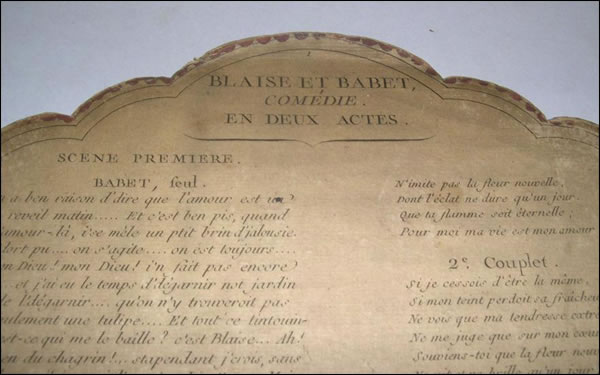 BLAISE ET BABET,
COMÉDIE.
EN DEUX ACTES.
SCENE PREMIERE.
BABET, seul.
a ben raison d'dire que l'amour est un
reveil matin..... Et c'est ben pis, quand
amour-là, i's'e mêle un ptit brin d'jalousie.
dort pu.... on s'agite.... on est toujours....
on Dieu! mon Dieu! i'n fait pas encore
et j'ai eu le tems d'dégarnir not jardin
de l'dégarnir.... qu'on n'y trouveroit pas
eulement une tulipe.... Et tout ce tintouin-
est-ce qui me le baille? c'est Blaise... Ah!
en du chagrin!... stapendant j'crois, sans
N'imite pas la fleur nouvelle,
Dont l'éclat ne dure qu'un jour.
Que ta flamme soit éternelle;
Pour moi ma vie est mon amour
2e. Couplet.
Si je cessois d'être la même,
Si mon teint perdoit sa fraicheur
Ne vois que ma tendresse extre
Ne me juge que sur mon cœur
Souviens-toi que la fleur nou